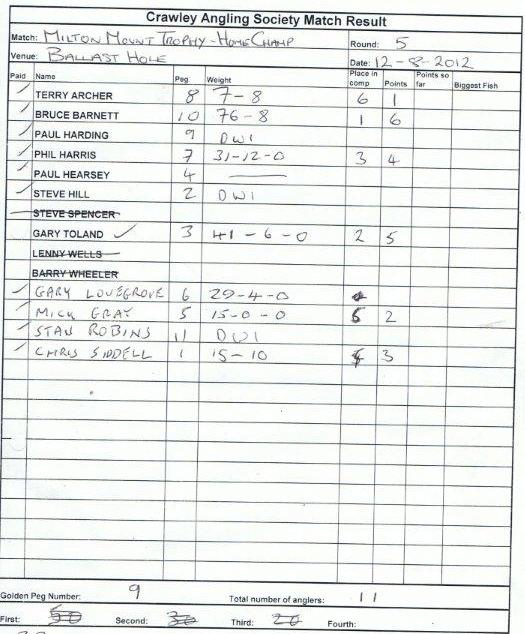 Crawley Angling Society Match Result
Match: MILTON MOUNT TROPHY - HOME CHAMP Round: 5
Venue: BALLAST HOLE Date: 12-8-2012
Paid Name Peg Weight Place in comp Points Points so far Biggest Fish
✓ TERRY ARCHER 8 7-8 6 1
✓ BRUCE BARNETT 10 76-8 1 6
✓ PAUL HARDING 9 DWI
✓ PHIL HARRIS 7 31-12-0 3 4
✓ PAUL HEARSEY 4 —
✓ STEVE HILL 2 DWI
STEVE SPENCER
GARY TOLAND ✓ 3 41-6-0 2 5
LENNY WELLS
BARRY WHEELER
✓ GARY LOVEGROVE 6 29-4-0
✓ MICK GRAY 5 15-0-0 5 2
✓ STAN ROBINS 11 DWI
✓ CHRIS SIDDELL 1 15-10 3
Golden Peg Number: 9 Total number of anglers: 11
First: 50 Second: 30 Third: 20 Fourth: